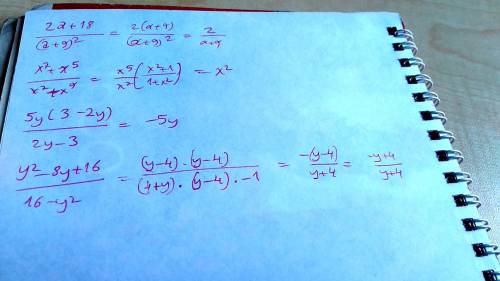 (2a+18)/(a+9)² = 2(a+9)/(a+9)² = 2/(a+9)
(x⁷+x⁵)/(x²+x⁴) = x⁵(x²+1)/x²(1+x²) = x²
5y(3-2y)/(2y-3) = -5y
(y²-8y+16)/(16-y²) = (y-4)·(y-4)/(4+y)·(y-4)·-1 = -(y-4)/(y+4) = (-y+4)/(y+4)